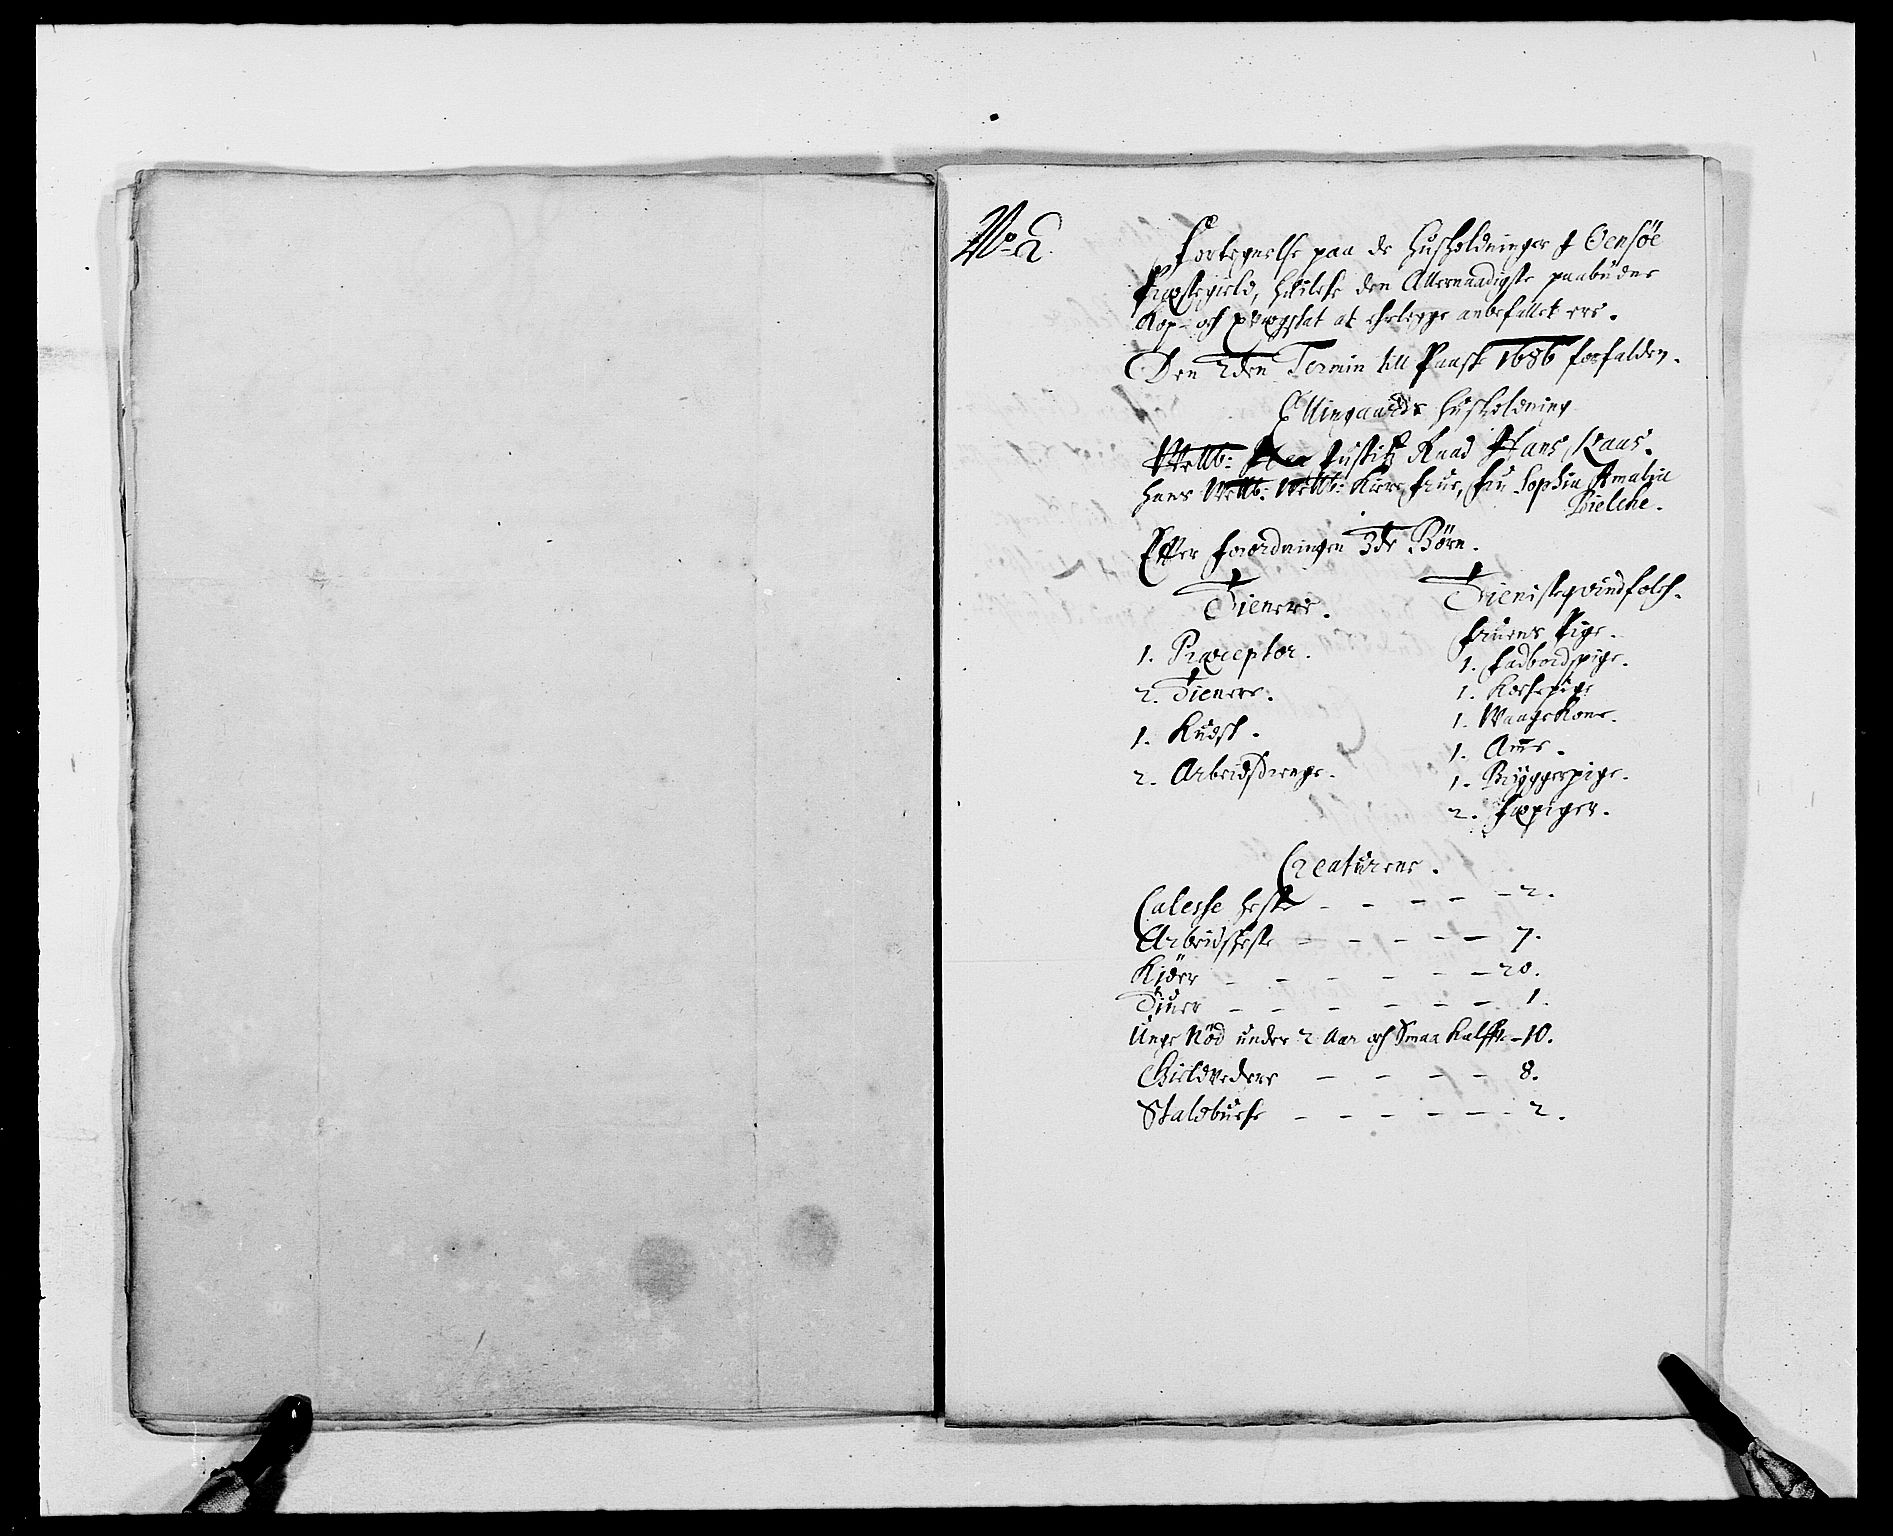 No 2.
Fortegnelse paa de Husholdninger J Oensøe
Præstegield, huilche den Allernaadigste paabudne
Kop- och qvægskat at erlegge anbefallet ere.
Den 2den Termin till Paaske 1686 forfalden.
Ellingaards Husholdning
Welb: Her Justitz Raad Hans Kaas.
Hans Welb: Kiere Frue, Fru Sophia Amalia
Bielche.
Efter Forordningen 3de Børn.
Tienere.
1. Præceptor.
2. Tienere.
1. Kudsk.
2. Arbeidsdrenge.
Tienisteqvindfolch.
Fruens Pige.
1. Fadbordspige.
1. Kochepige
1. Waagekone.
1. Amme.
1. Bryggerpige.
2. Fæpiger.
Creaturene.
Calesse Heste - - - - - 2.
Arbeidsheste - - - - - 7.
Kiøer - - - - - - 20.
Tiuer - - - - - - 1.
Unge Nød under 2 Aar och Smaa Kalffve - 10.
Gieldvedere - - - - 8.
Staldbucke - - - - - 2.